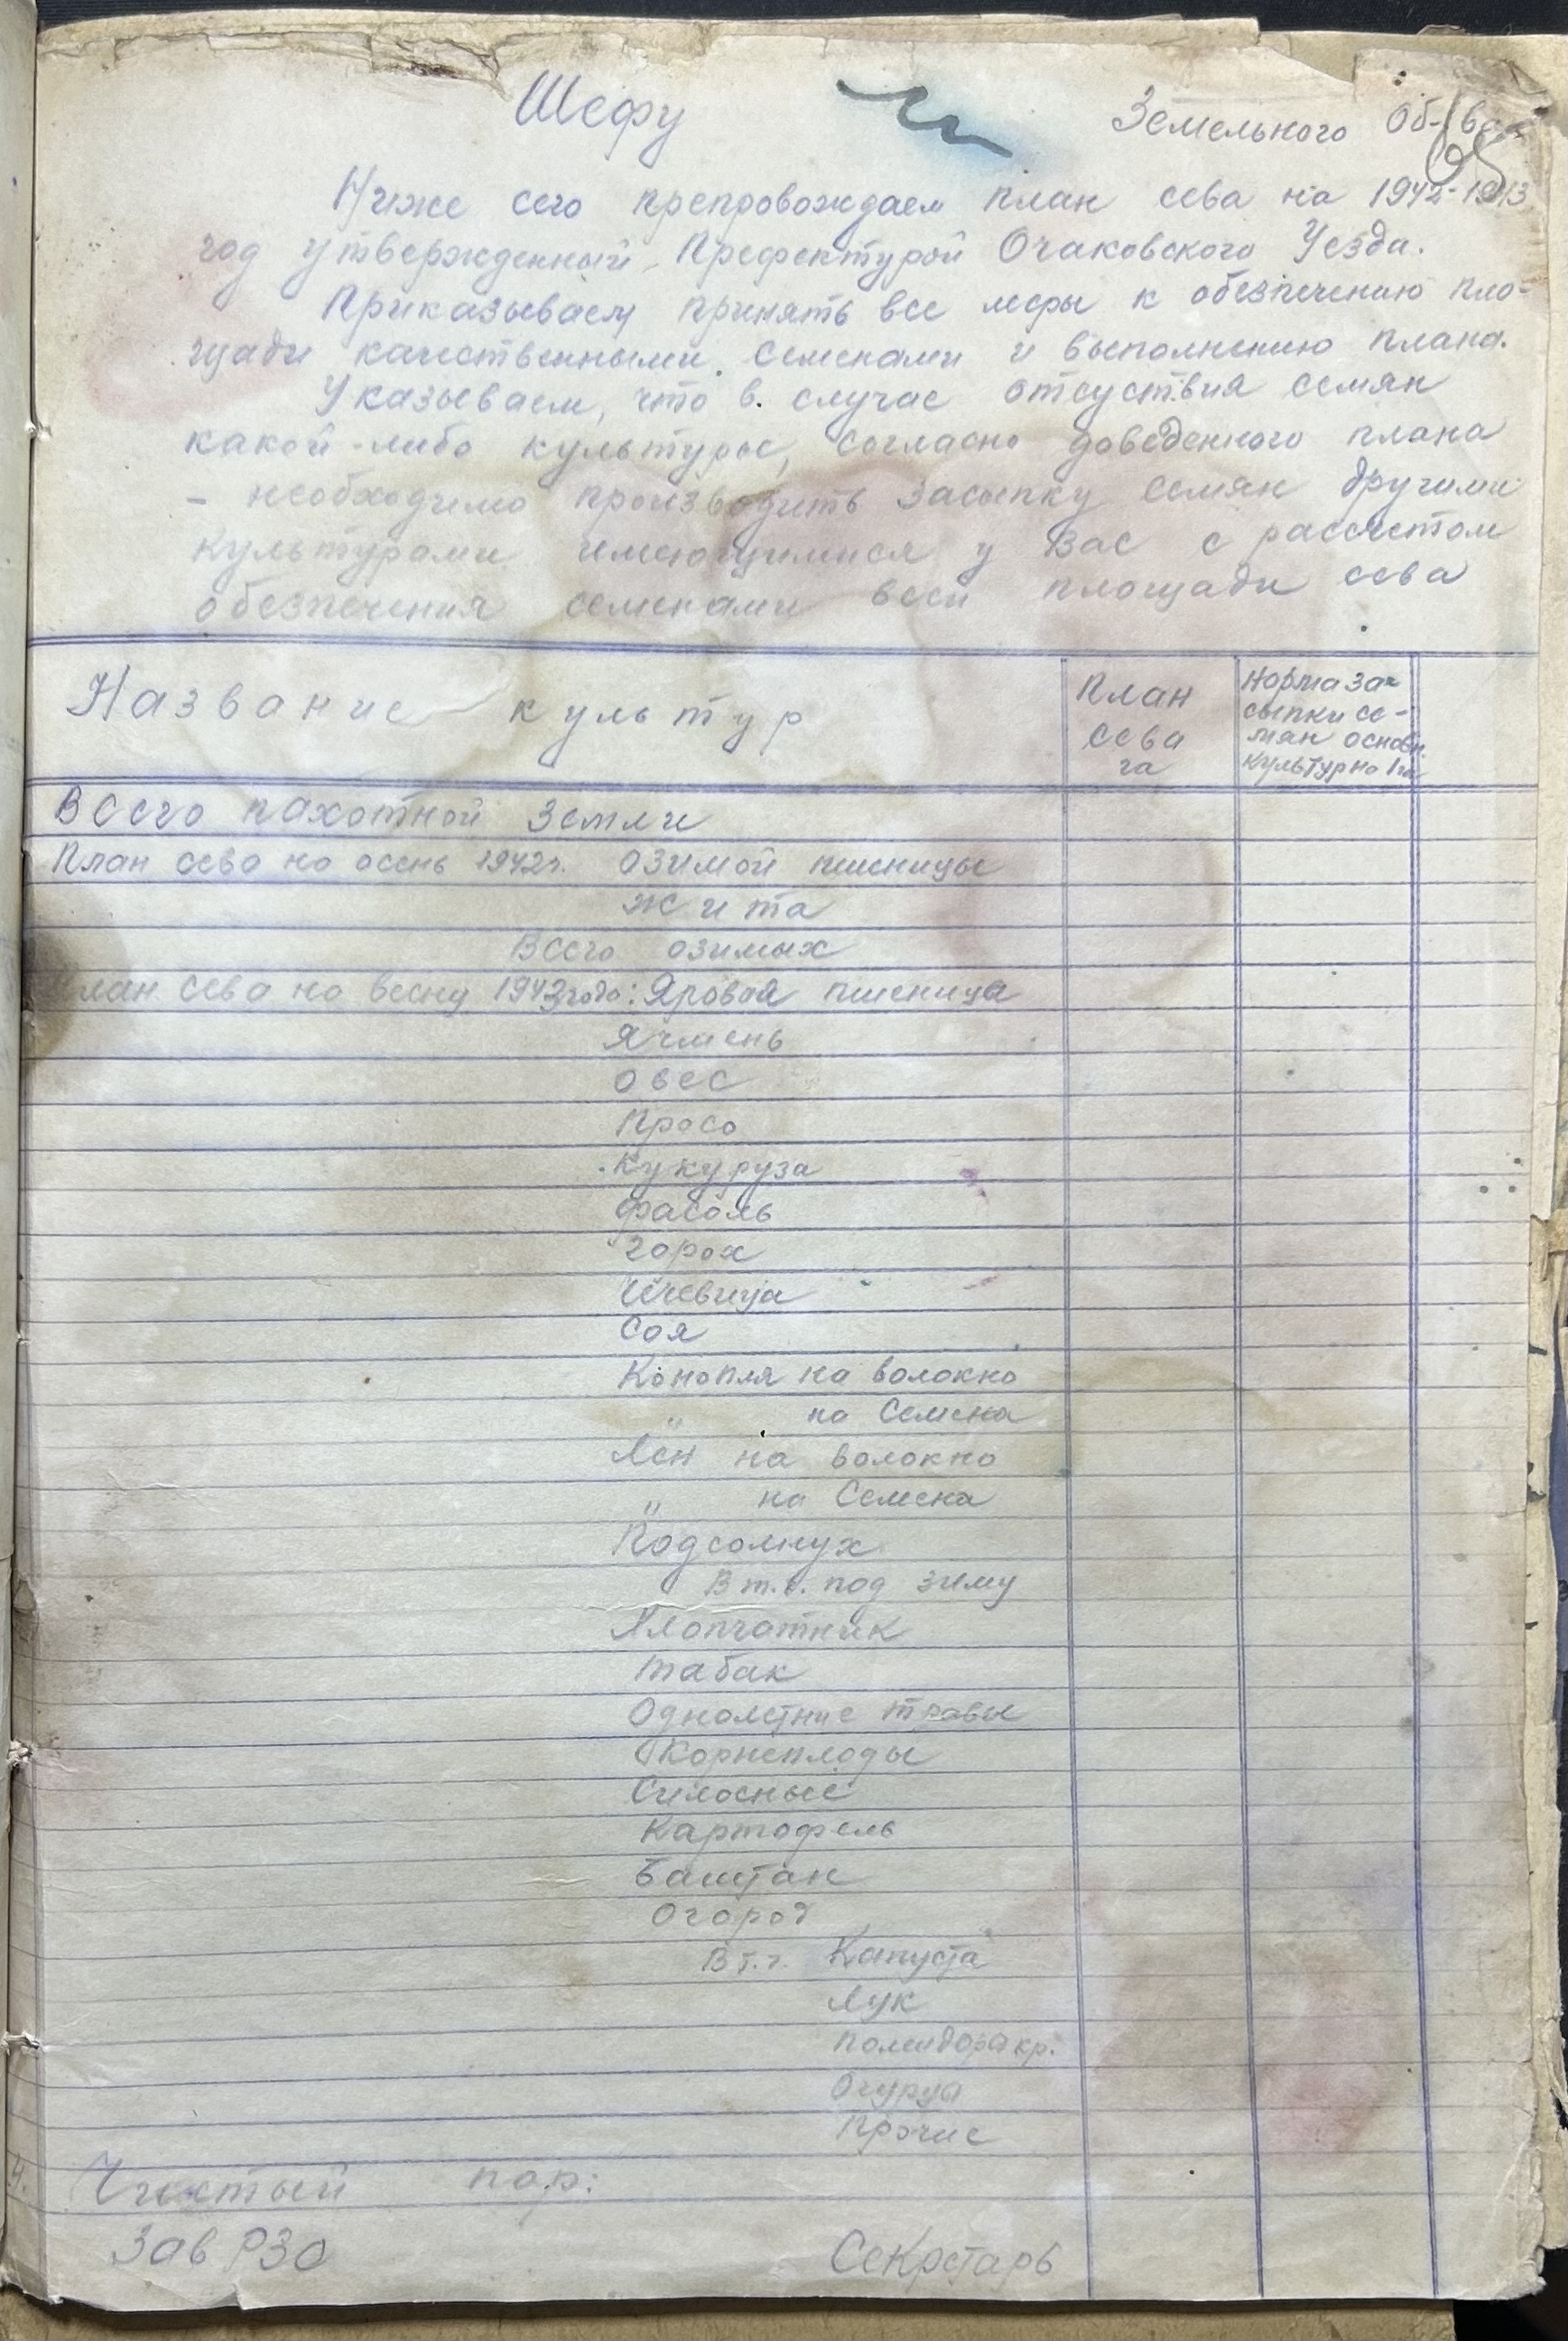 Шефу Земельного Об-ва
Ниже сего препровождаем план сева на 1942-1943
год утвержденный Префектурой Очаковского Уезда.
Приказываем принять все меры к обезпечению пло-
щади качественными семенами и выполнению плана.
Указываем, что в случае отсуствия семян
какой-либо культуры, согласно доведенного плана
- необходимо производить засыпку семян другими
культурами имеющимися у Вас с рассчетом
обезпечения семенами всей площади сева
Название культур
План
сева
га
Норма за-
сыпки се-
мян основн.
культур на 1 га
Всего пахотной земли
План сева на осень 1942г. Озимой пшеницы
Жита
Всего озимых
План сева на весну 1943 года: Яровая пшеница
Ячмень
Овес
Просо
Кукуруза
Фасоль
Горох
Чечевица
Соя
Конопля на волокно
" на Семена
Лен на волокно
" на Семена
Подсолнух
В т.ч. под зиму
Хлопчатник
Табак
Однолетние травы
Корнеплоды
Силосные
Картофель
Баштан
Огород
В т.ч. Капуста
Лук
Помидора кр.
Огурцы
Прочие
Чистый пар:
Зав РЗО Секретарь